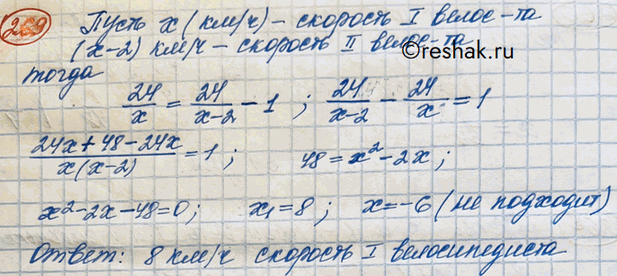 269 Пусть x (км/ч) – скорость I велос-та
(x-2) км/ч – скорость II велос-та
©reshak.ru
тогда
24/x = 24/(x-2) - 1 ; 24/(x-2) - 24/x = 1
(24x + 48 - 24x)/(x(x-2)) = 1 ; 48 = x² - 2x ;
x² - 2x - 48 = 0 ; x₁ = 8 ; x = -6 (не подходит)
Ответ: 8 км/ч скорость I велосипедиста